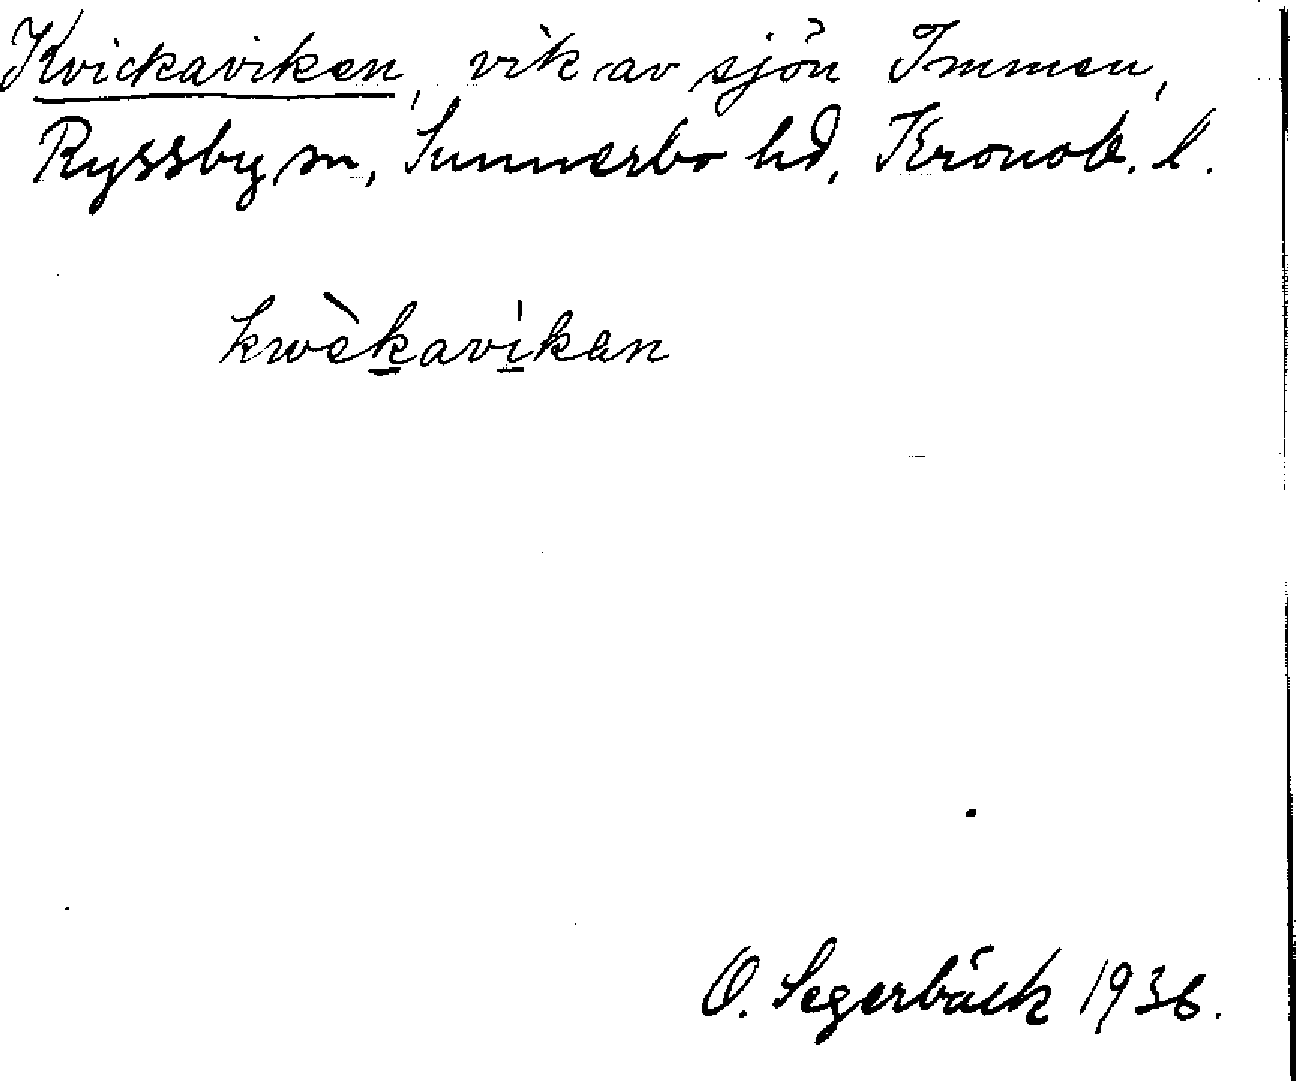 Kvickaviken, vik av sjön Immen,
Ryssby sn, Sunnerbo hd, Kronob. l.
kwèkavìken
O. Segerbäck 1936.